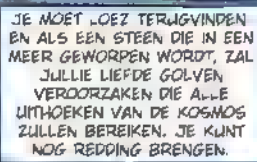 JE MOET LOEZ TERUGVINDEN
EN ALS EEN STEEN DIE IN EEN
MEER GEWORPEN WORDT, ZAL
JULLIE LIEFDE GOLVEN
VEROORZAKEN DIE ALLE
UITHOEKEN VAN DE KOSMOS
ZULLEN BEREIKEN. JE KUNT
NOG REDDING BRENGEN.